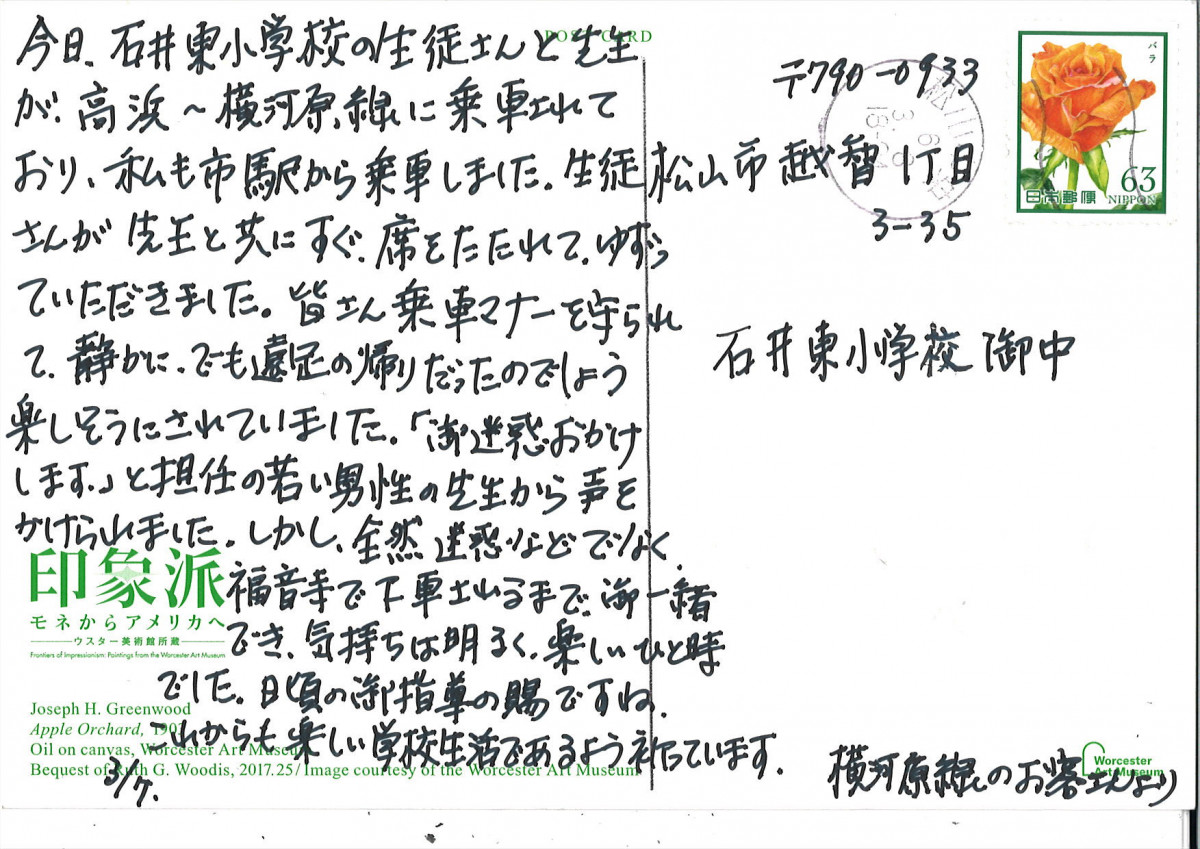 今日、石井東小学校の生徒さんと先生
が、高浜〜横河原線に乗車されて
おり、私も市駅から乗車しました。生徒
さんが先生と共にすぐ、席をたたれて、ゆずっ
ていただきました。皆さん乗車マナーを守られ
て、静かに、でも遠足の帰りだったのでしょう
楽しそうにされていました。「御迷惑おかけ
します。」と担任の若い男性の先生から声を
かけられました。しかし、全然迷惑などでなく、
福音寺で下車されるまで、御一緒
でき、気持ちは明るく、楽しいひと時
でした。日頃の御指導の賜ですね。
これからも楽しい学校生活であるよう祈っています。
POST CARD
印象派
モネからアメリカへ
ウスター美術館所蔵
Frontiers of Impressionism: Paintings from the Worcester Art Museum
Joseph H. Greenwood
Apple Orchard, 1903
Oil on canvas, Worcester Art Museum
Bequest of Ruth G. Woodis, 2017.25/ Image courtesy of the Worcester Art Museum
〒790-0933
松山市越智1丁目
3-35
石井東小学校 御中
横河原線のお客さんより
バラ
63
日本郵便 NIPPON
Worcester
Art Museum